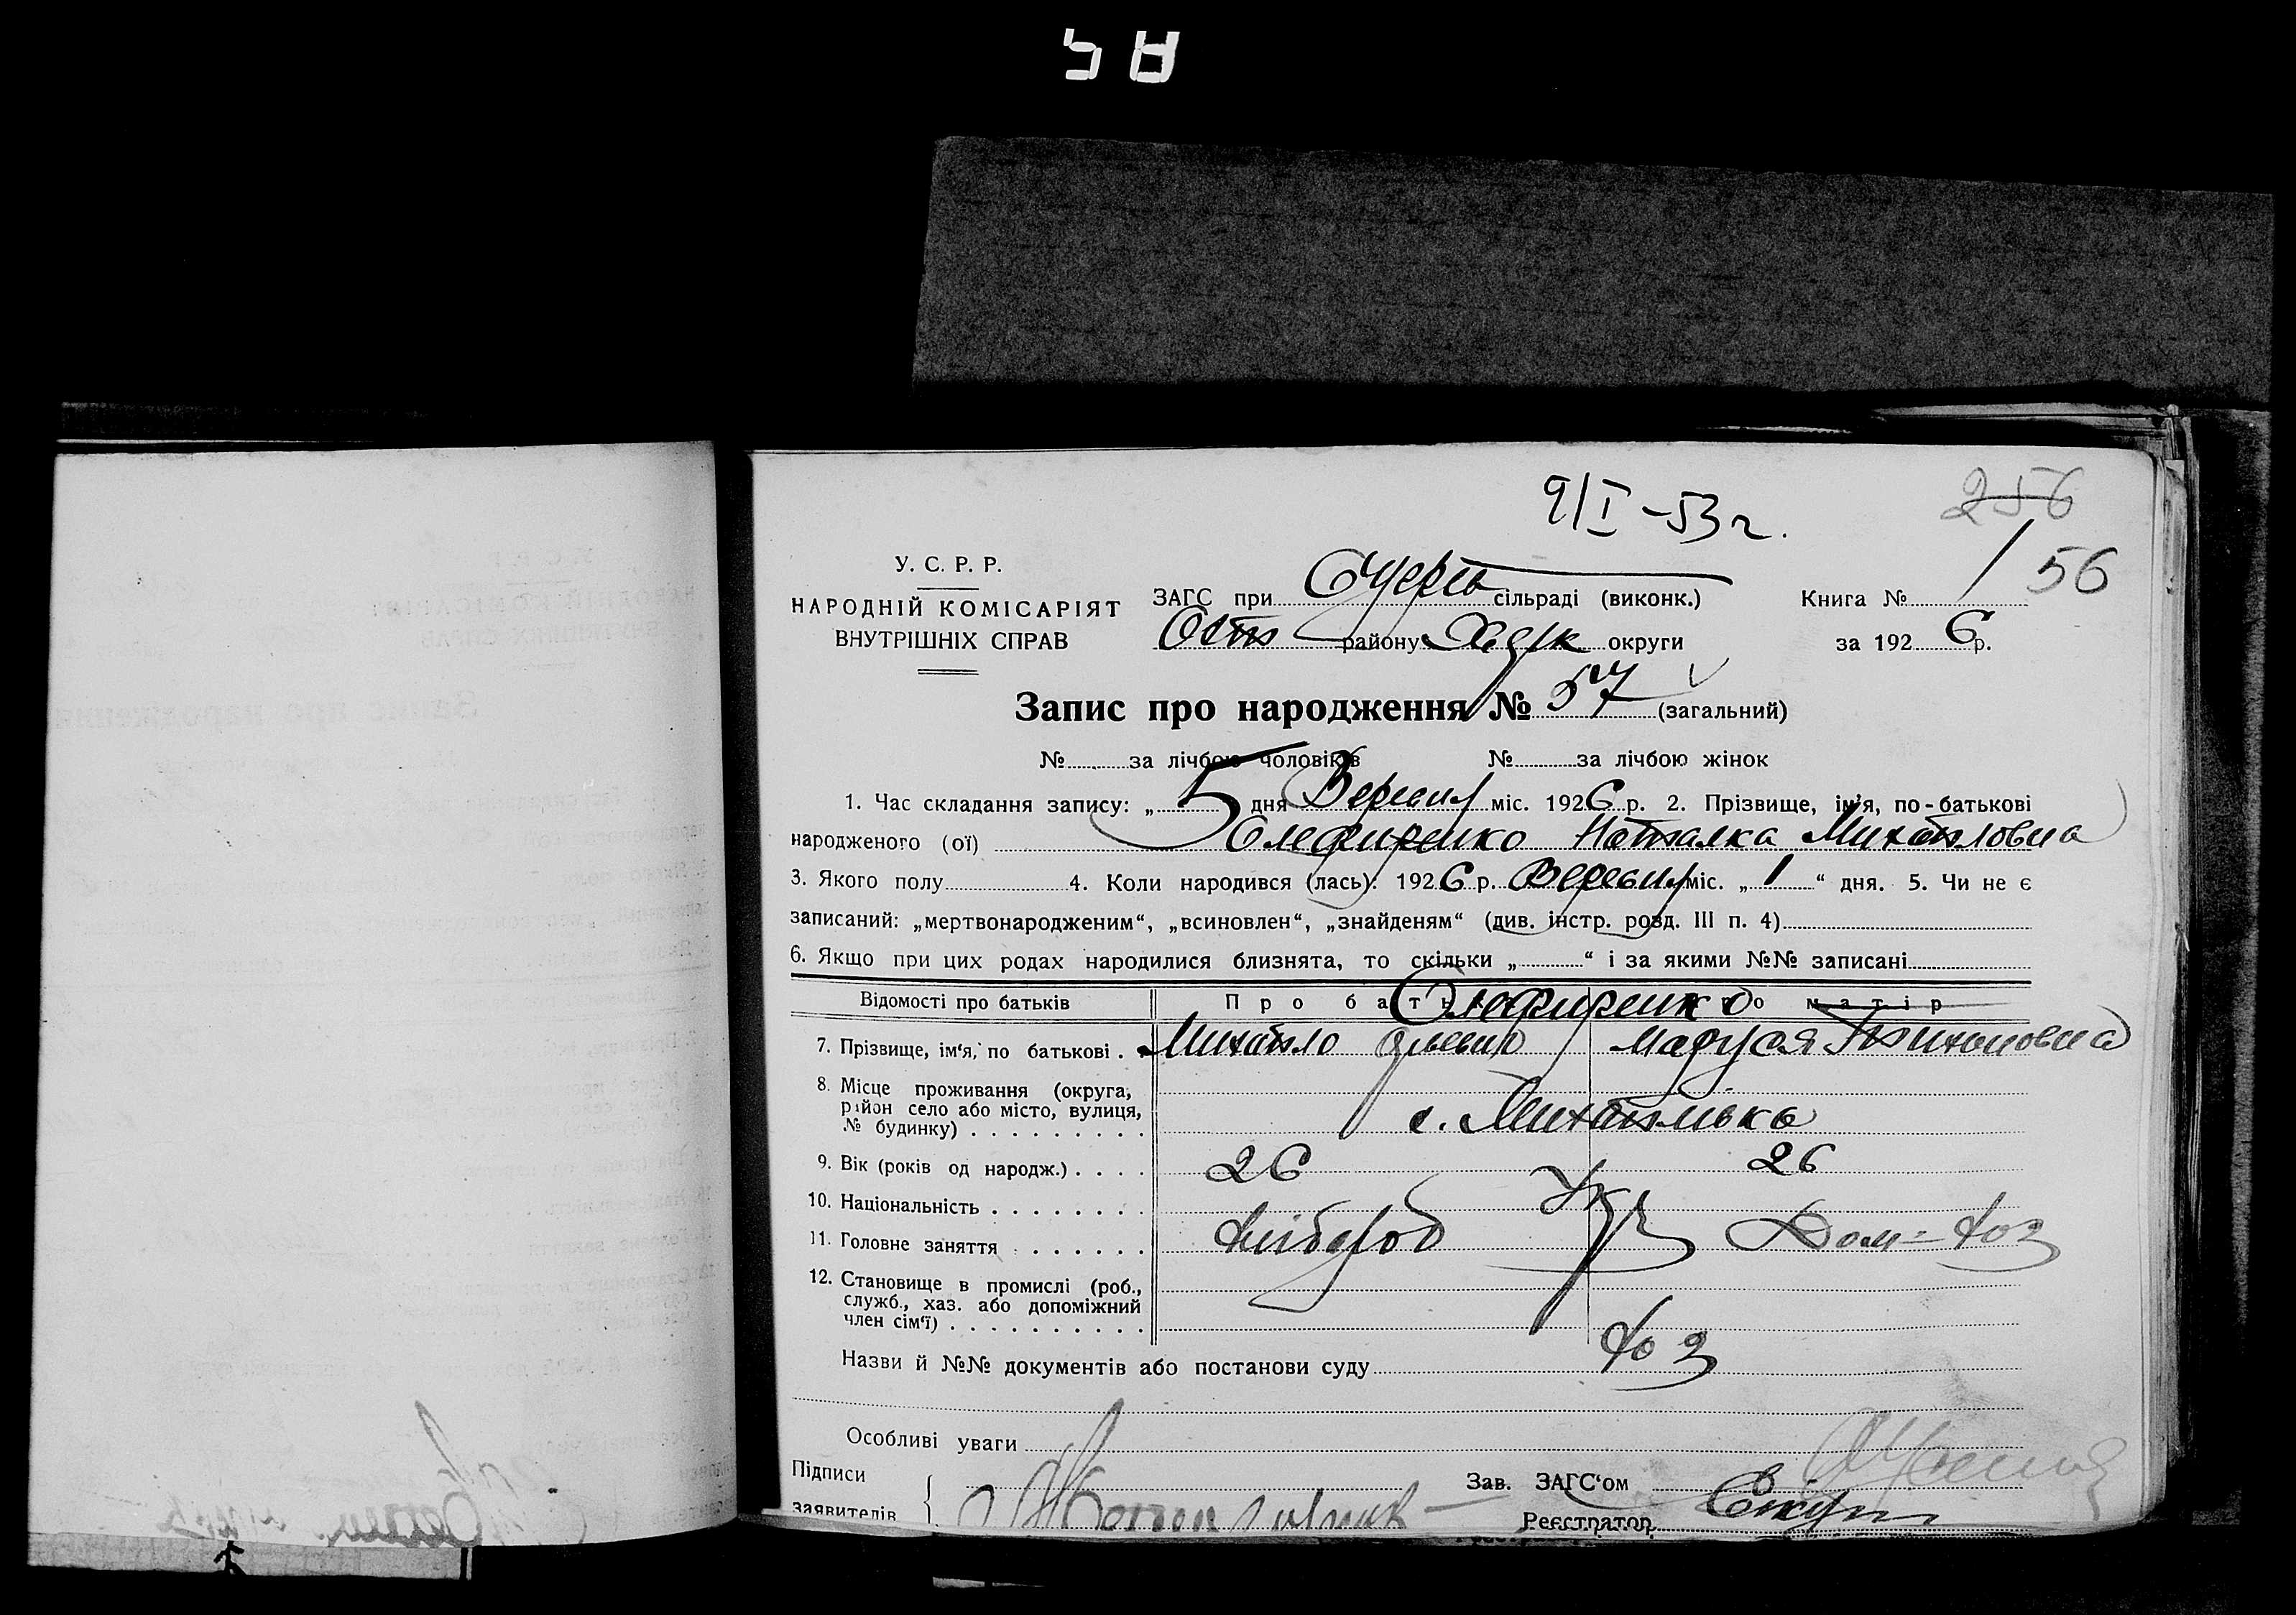 58
9/I-53 г.
256
56
У. С. Р. Р.
НАРОДНІЙ КОМІСАРІЯТ
ВНУТРІШНІХ СПРАВ
ЗАГС при сільраді (виконк.)
району округи
Книга № 1
за 1926 р.
Запис про народження № 57 (загальний)
№ за лічбою чоловіків № за лічбою жінок
1. Час складання запису: „ 5 дня міс. 1926 р. 2. Прізвище, ім'я, по-батькові
народженого (ої) Олефиренко Наталка Михайловна
3. Якого полу 4. Коли народився (лась): 1926 р. міс. „ 1 “ дня. 5. Чи не є
записаний: „мертвонародженим“, „всиновлен“, „знайденям“ (див. інстр. розд. III п. 4)
6. Якщо при цих родах народилися близнята, то скільки „ “ і за якими №№ записані
Відомості про батьків Про Олефиренко матір
7. Прізвище, ім'я, по батькові . Михайло Маруся Тихоновна
8. Місце проживання (округа,
район село або місто, вулиця,
№ будинку) . . . . . . . . . с.
9. Вік (років од народж.) . . . . 26 26
10. Національність . . . . . . . . Укр
11. Головне заняття . . . . . . . хлібороб Дом=хоз
12. Становище в промислі (роб.,
служб., хаз. або допоміжний
член сім'ї) . . . . . . . . . .
Назви й №№ документів або постанови суду хоз
Особливі уваги
Підписи
заявителів
Зав. ЗАГС'ом
Реєстратор